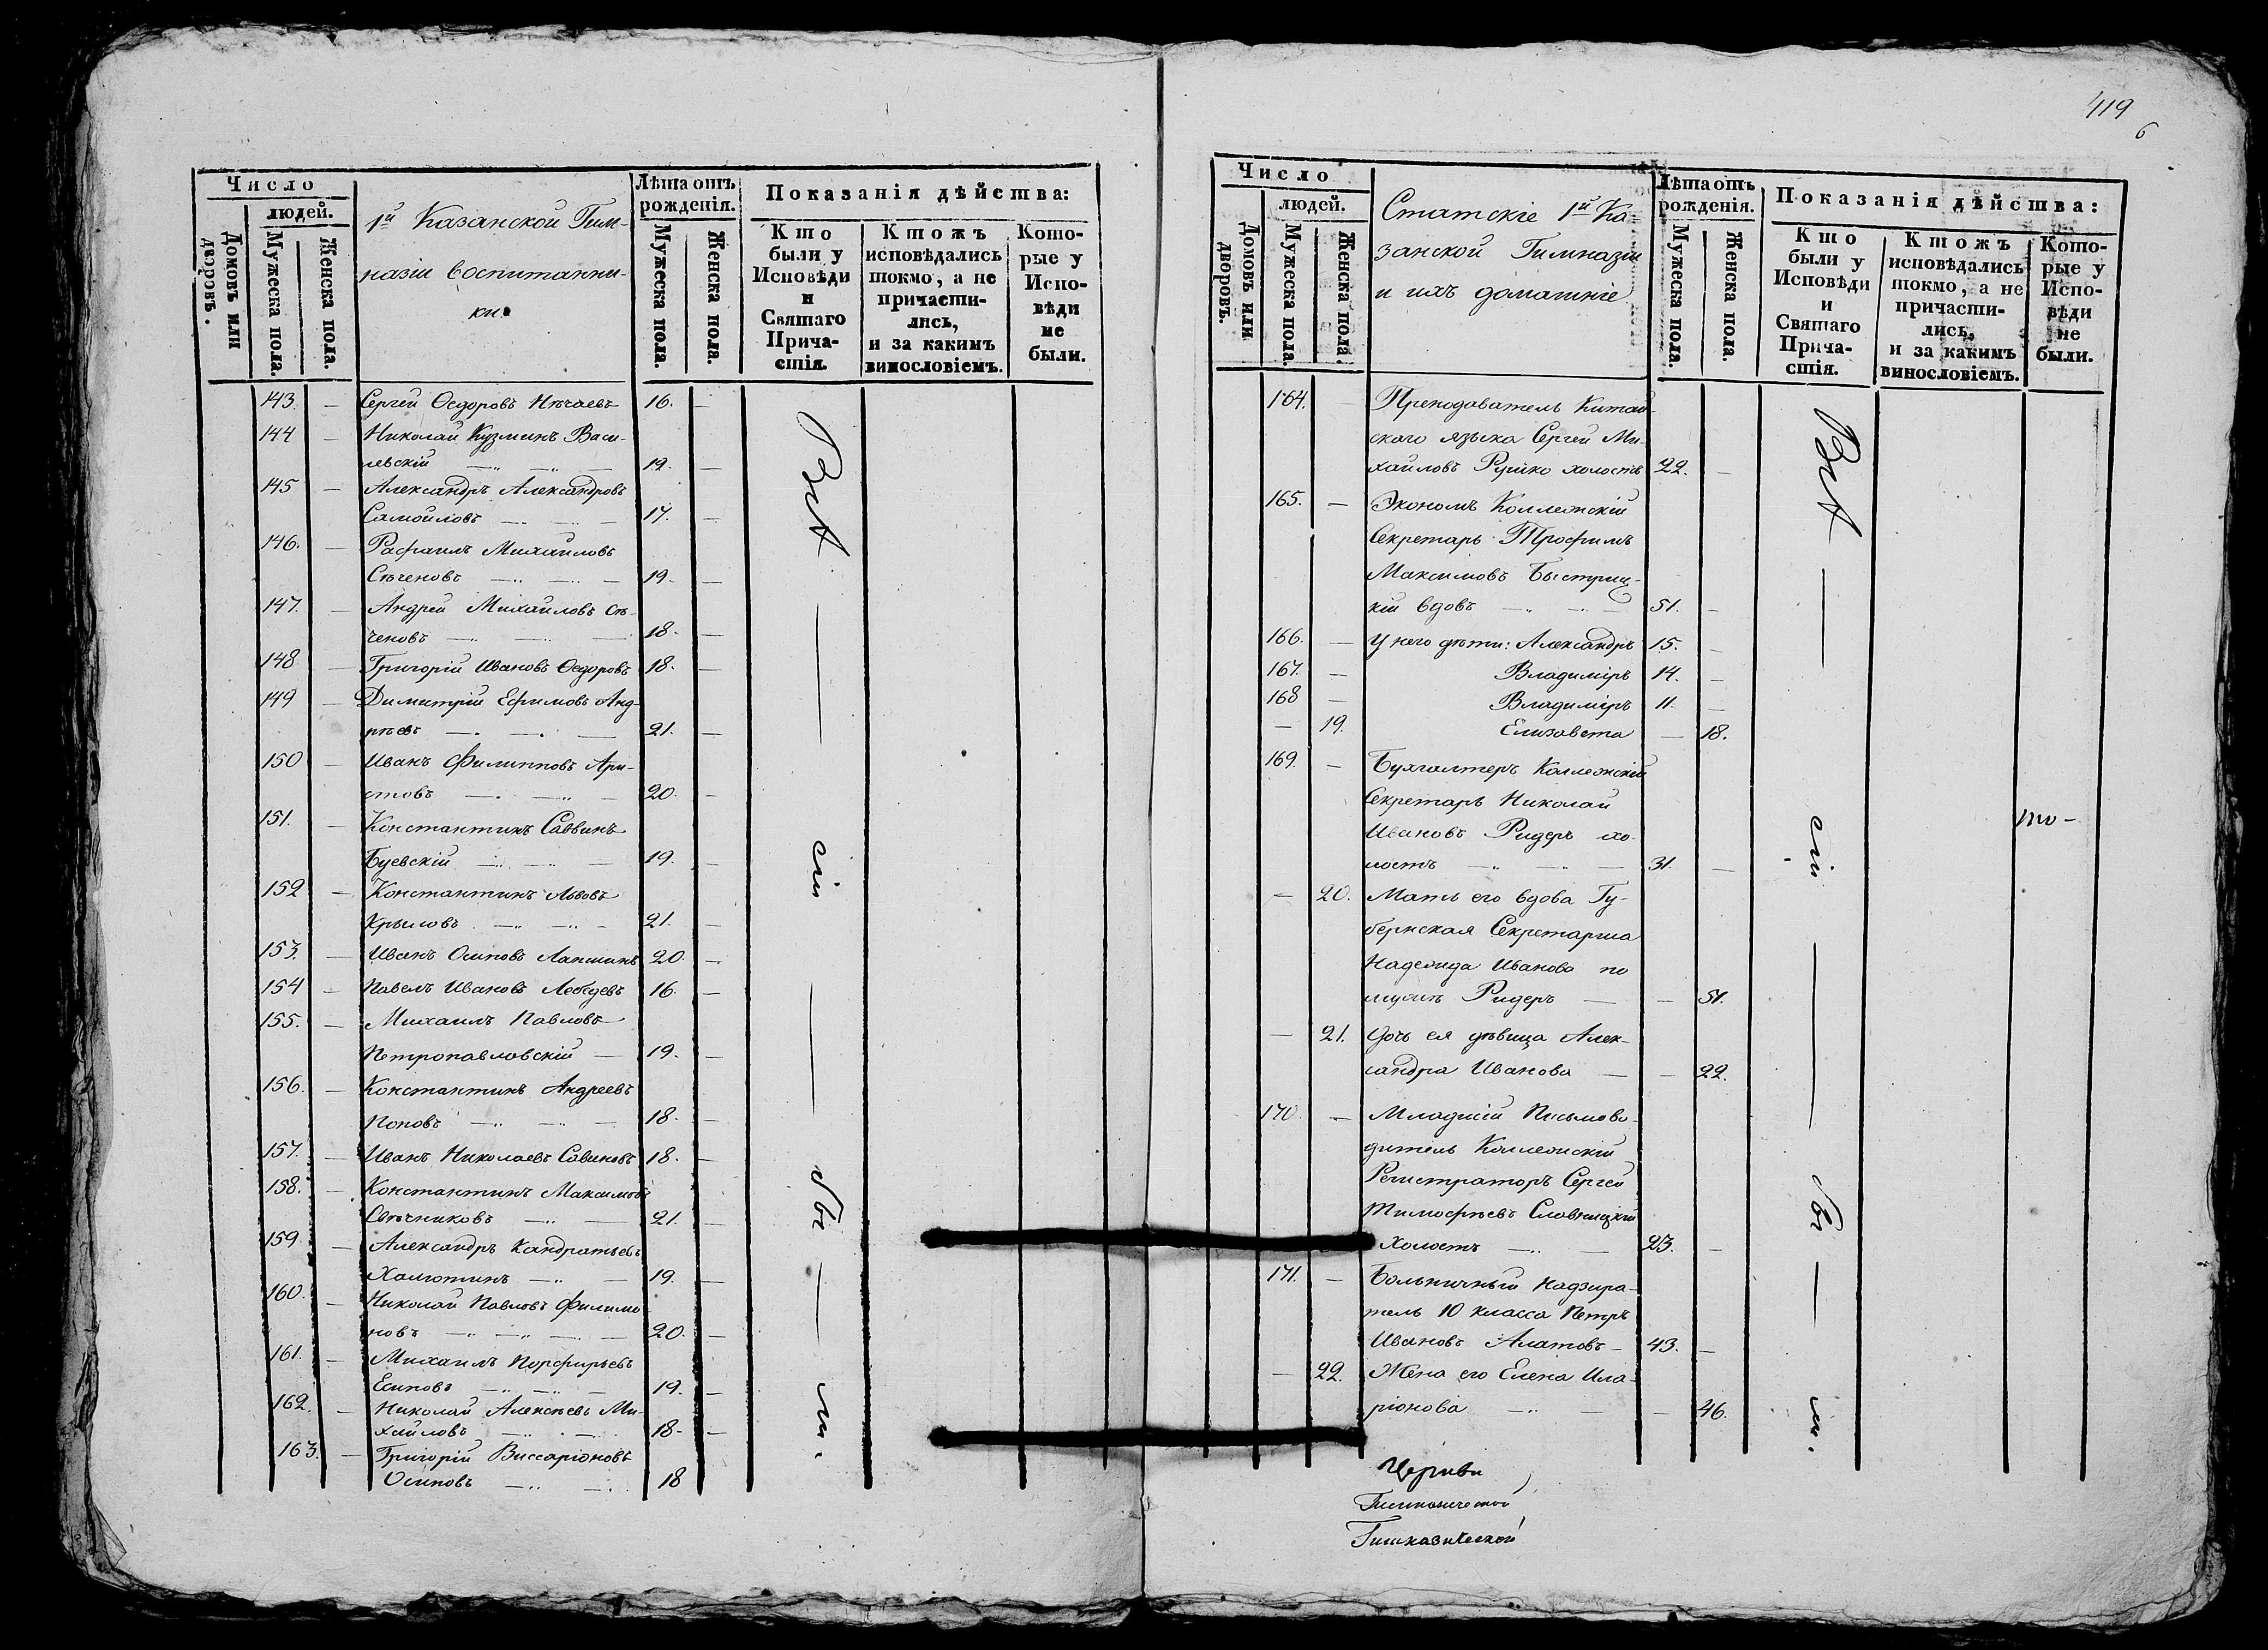 419
6
Число
людей.
Домовъ или дворовъ.
Мужеска пола.
Женска пола.
1й Казанской Гим-
назіи воспитанни-
ки.
Лѣта отъ рожденія.
Мужеска пола.
Женска пола.
Показанія дѣйства:
Кто были у Исповѣди и Святаго Прича-стія.
Ктожъ исповѣдались токмо, а не причасти-лись, и за какимъ винословіемъ.
Кото-рые у Испо-вѣди не были.
143. — Сергей Ѳедоровъ Нѣчаевъ 16. —
144 — Николай Кузминъ Васи-
левскій — „ — „ — 19. —
145 — Александръ Александровъ
Самойловъ — 17. —
146. — Рафаилъ Михайловъ
Сѣченовъ — „ — „ — 19. —
147. — Андрей Михайловъ Сѣ-
ченовъ — „ — 18. —
148 — Григорій Ивановъ Ѳедоровъ 18. —
149 — Димитрій Ефимовъ Анд-
рѣевъ — „ — 21. —
150 — Иванъ Филипповъ Ари-
стовъ — „ — 20. —
151. — Константинъ Саввинъ
Буевскій — „ — 19. —
152 — Константинъ Львовъ
Крыловъ — „ — „ — 21. —
153. — Иванъ Осиповъ Лапшинъ 20. —
154 — Павелъ Ивановъ Лебедевъ 16. —
155. — Михаилъ Павловъ
Петропавловскій — 19. —
156. — Константинъ Андреевъ
Поповъ — „ — „ — 18. —
157. — Иванъ Николаевъ Савиновъ 18. —
158. — Константинъ Максимовъ
Свѣчниковъ — „ — 21. —
159 — Александръ Кандратьевъ
Халютинъ — „ — 19. —
160. — Николай Павловъ Филимо
новъ — „ — „ — 20. —
161. — Михаилъ Порфирьевъ
Есиповъ — „ — „ — 19. —
162. — Николай Алексѣевъ Ми-
хайловъ — 18. —
163. — Григорій Виссаріоновъ
Осиповъ — „ — 18
Всѣ — сіи — бы — ли.
Число
людей.
Домовъ или дворовъ.
Мужеска пола.
Женска пола.
Статскіе 1й Ка-
занской Гимназіи
и ихъ домашніе
Лѣта отъ рожденія.
Мужеска пола.
Женска пола.
Показанія дѣйства:
Кто были у Исповѣди и Святаго Прича-стія.
Ктожъ исповѣдались токмо, а не причасти-лись, и за какимъ винословіемъ.
Кото-рые у Испо-вѣди не были.
164. — Преподаватель Китай-
скаго языка Сергей Ми-
хайловъ Рушко холостъ 22. —
165. — Экономъ Коллежскій
Секретарь Трофимъ
Максимовъ Быстриц-
кій вдовъ — „ — 51. —
166. — У него дѣти: Александръ 15. —
167. — Владиміръ 14. —
168 — Владиміръ 11. —
— 19. Елизавета — 18.
169. — Бухгалтеръ Коллежскій
Секретарь Николай
Ивановъ Ридеръ хо-
лостъ — „ — 31. —
— 20. Мать его вдова Гу-
бернская Секретарша
Надежда Иванова по
мужѣ Ридеръ — — 51.
— 21. Дочь ея дѣвица Алек-
сандра Иванова — — 22.
170. — Младшій Письмово-
дитель Коллежскій
Регистраторъ Сергей
Тимофѣевъ Словницкій
Холостъ — „ — 23. —
171. — Больничный Надзира-
тель 10 класса Петръ
Ивановъ Алатовъ — 43. —
— 22. Жена его Елена Ила-
ріонова — „ — — 46.
Всѣ — сіи — бы — ли.
Церкви
Гимназической
Гимназической